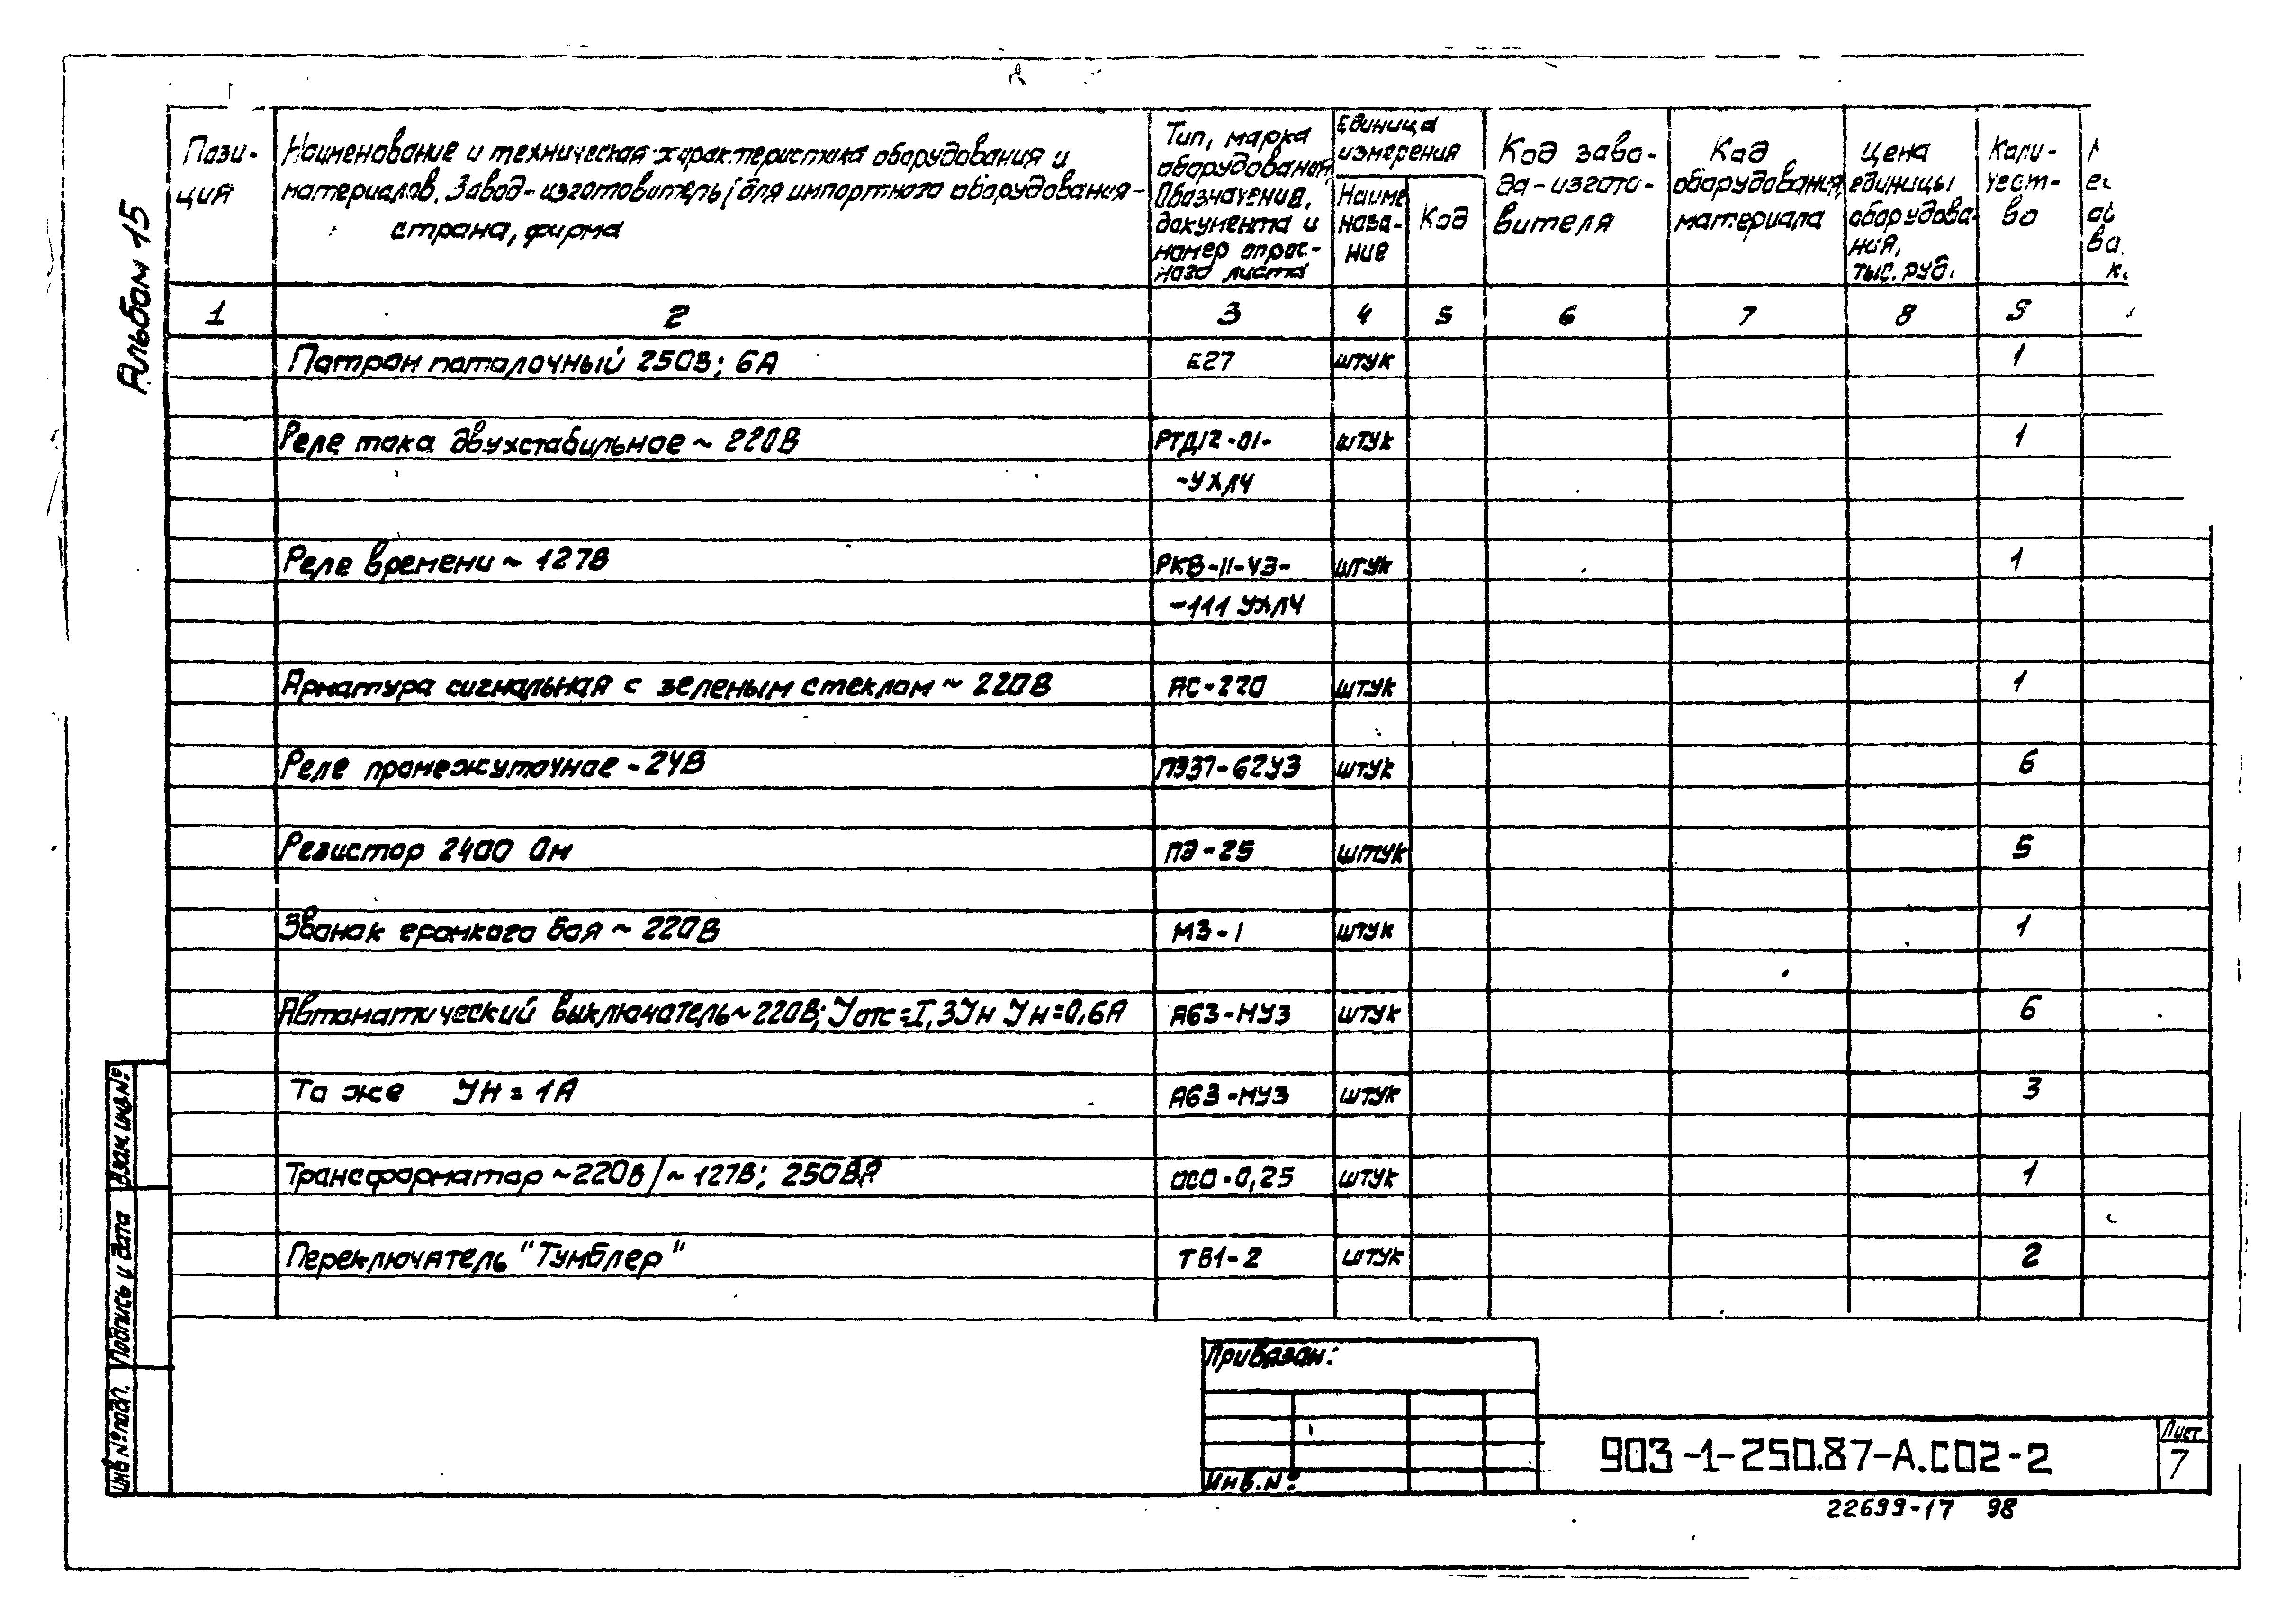 Альбом 15
Пози-
ция
Наименование и техническая характеристика оборудования и
материалов. Завод-изготовитель (для импортного оборудования-
страна, фирма
Тип, марка
оборудования
Обозначение,
документа и
номер опрос-
ного листа
Единица
измерения
Наиме
нова-
ние
Код
Код заво-
да-изгото-
вителя
Код
оборудования,
материала
Цена
единицы
оборудова-
ния,
тыс. руб.
Коли-
чест-
во
1 2 3 4 5 6 7 8 9
Патрон потолочный 250В; 6А Е27 штук 1
Реле тока двухстабильное ~ 220В РТД12-01- штук 1
-УХЛ4
Реле времени ~ 127В РКВ-11-43- штук 1
-111 УХЛ4
Арматура сигнальная с зеленым стеклом ~ 220В АС-220 штук 1
Реле промежуточное -24В ПЭ37-62У3 штук 6
Резистор 2400 Ом ПЭ-25 штук 5
Звонок громкого боя ~ 220В МЗ-1 штук 1
Автоматический выключатель~220В; Jотс=I,3Jн Jн=0,6А А63-МУ3 штук 6
То же Jн = 1А А63-МУ3 штук 3
Трансформатор ~220В/~127В; 250ВА ОСО-0,25 штук 1
Переключатель "Тумблер" ТВ1-2 штук 2
Взам. инв №
Подпись и дата
Инв № подл.
Привязан:
Инв. №
903-1-250.87-А.СО2-2
Лист
7
22699-17 98